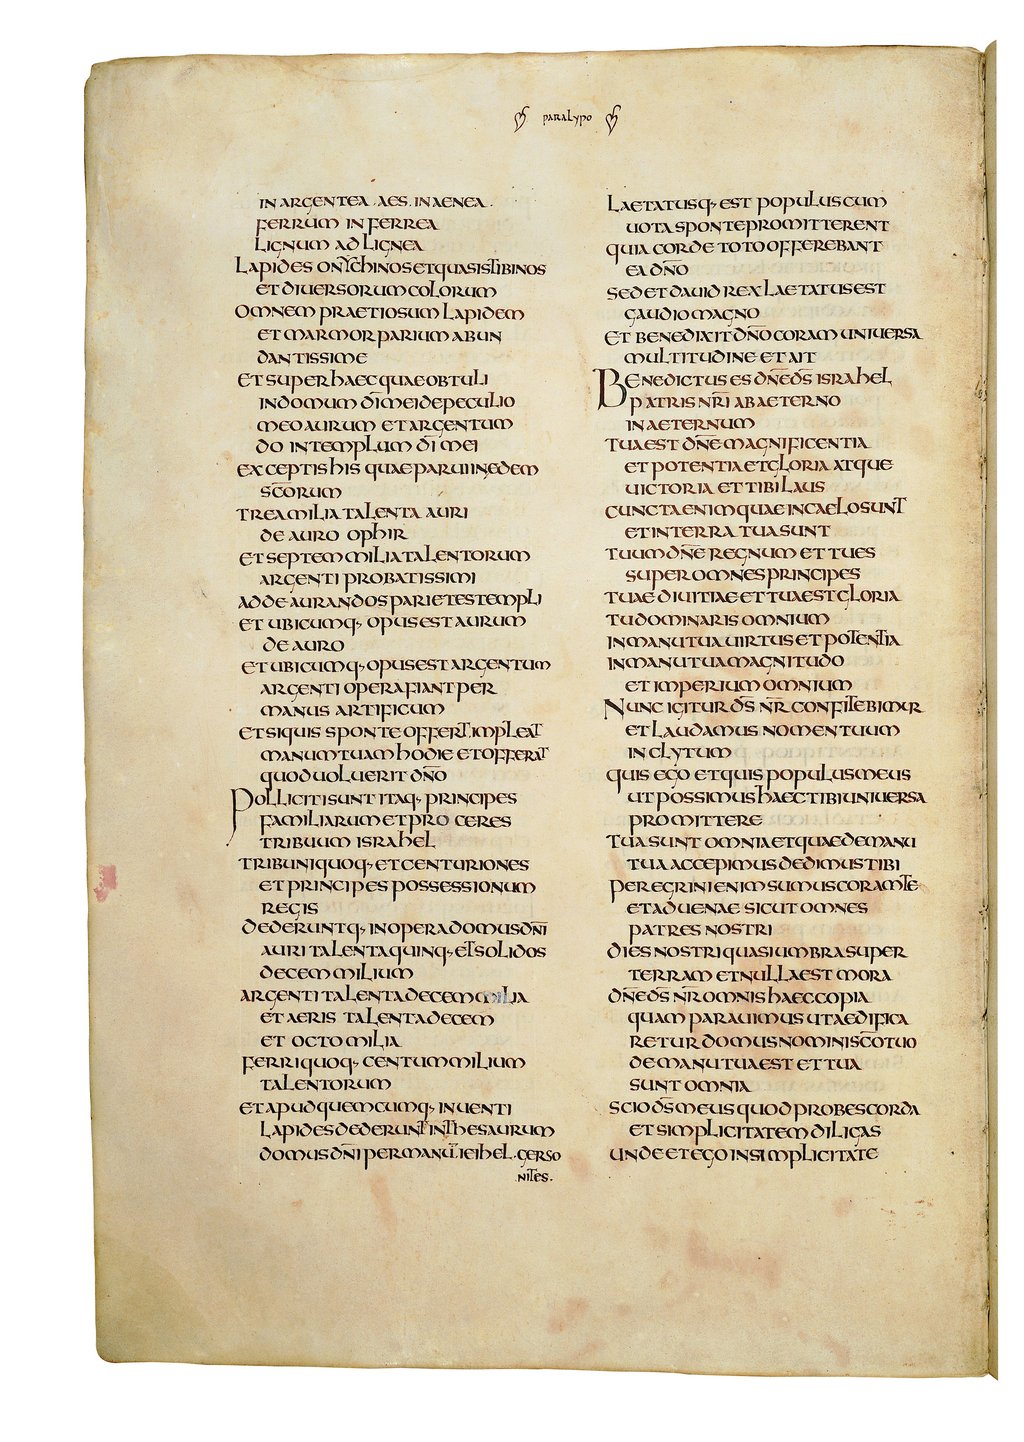 paralypo
IN ARGENTEA · AES · IN AENEA ·
FERRUM IN FERREA
LIGNUM AD LIGNEA
LAPIDES ONYCHINOS ET QUASI STIBINOS
ET DIVERSORUM COLORUM
OMNEM PRAETIOSUM LAPIDEM
ET MARMOR PARIUM ABUN
DANTISSIME
ET SUPER HAEC QUAE OBTULI
IN DOMUM D̄I MEI DE PECULIO
MEO AURUM ET ARGENTUM
DO IN TEMPLUM D̄I MEI
EXCEPTIS HIS QUAE PARUI IN EDEM
SC̄ORUM
TREA MILIA TALENTA AURI
DE AURO OPHIR
ET SEPTEM MILIA TALENTORUM
ARGENTI PROBATISSIMI
AD DEAURANDOS PARIETES TEMPLI
ET UBICUMQ· OPUS EST AURUM
DE AURO
ET UBICUMQ· OPUS EST ARGENTUM
ARGENTI OPERA FIANT PER
MANUS ARTIFICUM
ET SI QUIS SPONTE OFFERT IMPLEAT
MANUM TUAM HODIE ET OFFERAT
QUOD UOLUERIT DN̄O
POLLICITI SUNT ITAQ· PRINCIPES
FAMILIARUM ET PROCERES
TRIBUUM ISRAHEL
TRIBUNI QUOQ· ET CENTURIONES
ET PRINCIPES POSSESSIONUM
REGIS
DEDERUNTQ· IN OPERA DOMUS DN̄I
AURI TALENTA QUINQ· ET SOLIDOS
DECEM MILIUM
ARGENTI TALENTA DECEM MILIA
ET AERIS TALENTA DECEM
ET OCTO MILIA
FERRI QUOQ· CENTUM MILIUM
TALENTORUM
ET APUD QUEMCUMQ· INUENTI
LAPIDES DEDERUNT IN THESAURUM
DOMUS DN̄I PER MANU IEIHEL · GERSO
NITES ·
LAETATUSQ· EST POPULUS CUM
UOTA SPONTE PROMITTERENT
QUIA CORDE TOTO OFFEREBANT
EA DN̄O
SED ET DAUID REX LAETATUS EST
GAUDIO MAGNO
ET BENEDIXIT DN̄O CORAM UNIUERSA
MULTITUDINE ET AIT
BENEDICTUS ES DN̄E D̄S ISRAHEL
PATRIS NR̄I AB AETERNO
IN AETERNUM
TUA EST DN̄E MAGNIFICENTIA
ET POTENTIA ET GLORIA ATQUE
UICTORIA ET TIBI LAUS
CUNCTA ENIM QUAE IN CAELO SUNT
ET IN TERRA TUA SUNT
TUUM DN̄E REGNUM ET TU ES
SUPER OMNES PRINCIPES
TUAE DIUITIAE ET TUA EST GLORIA
TU DOMINARIS OMNIUM
IN MANU TUA UIRTUS ET POTENTIA
IN MANU TUA MAGNITUDO
ET IMPERIUM OMNIUM
NUNC IGITUR D̄S NR̄ CONFITEBIMUR
ET LAUDAMUS NOMEN TUUM
INCLYTUM
QUIS EGO ET QUIS POPULUS MEUS
UT POSSIMUS HAEC TIBI UNIUERSA
PROMITTERE
TUA SUNT OMNIA ET QUAE DE MANU
TUA ACCEPIMUS DEDIMUS TIBI
PEREGRINI ENIM SUMUS CORAM TE
ET ADUENAE SICUT OMNES
PATRES NOSTRI
DIES NOSTRI QUASI UMBRA SUPER
TERRAM ET NULLA EST MORA
DN̄E D̄S NR̄ OMNIS HAEC COPIA
QUAM PARAUIMUS UT AEDIFICA
RETUR DOMUS NOMINI SC̄O TUO
DE MANU TUA EST ET TUA
SUNT OMNIA
SCIO D̄S MEUS QUOD PROBES CORDA
ET SIMPLICITATEM DILIGAS
UNDE ET EGO IN SIMPLICITATE